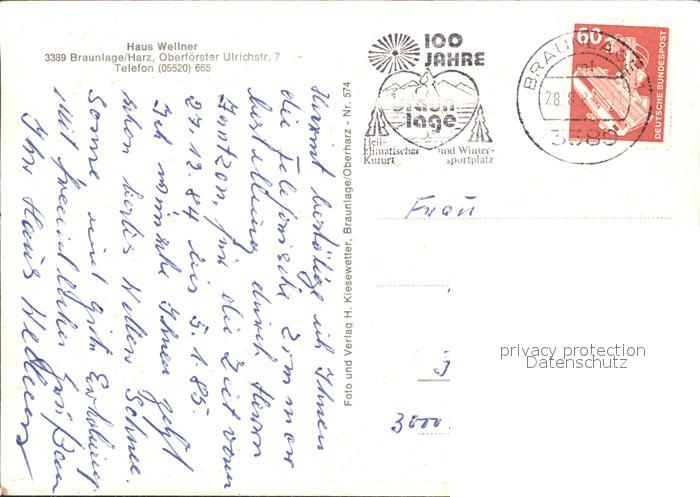 Haus Wellner
3389 Braunlage/Harz, Oberförster Ulrichstr. 7
Telefon (05520) 665
Hiermit bestätige ich Ihnen
die telefonische Zimmer
bestellung durch Herrn
für die Zeit vom
27.12.84 bis 5.1.85.
Ich wünsche Ihnen jetzt
schon Wetter Schnee
Sonne und gute Erholung.
Mit freundlichen Grüßen
Ihr Haus Wellner
Foto und Verlag H. Kiesewetter, Braunlage/Oberharz - Nr. 574
100
JAHRE
braun
lage
Heil-
klimatischer und Winter-
Kurort sportplatz
BRAUNLAGE
28.8
3389
60
DEUTSCHE BUNDESPOST
Frau
3000
privacy protection
Datenschutz